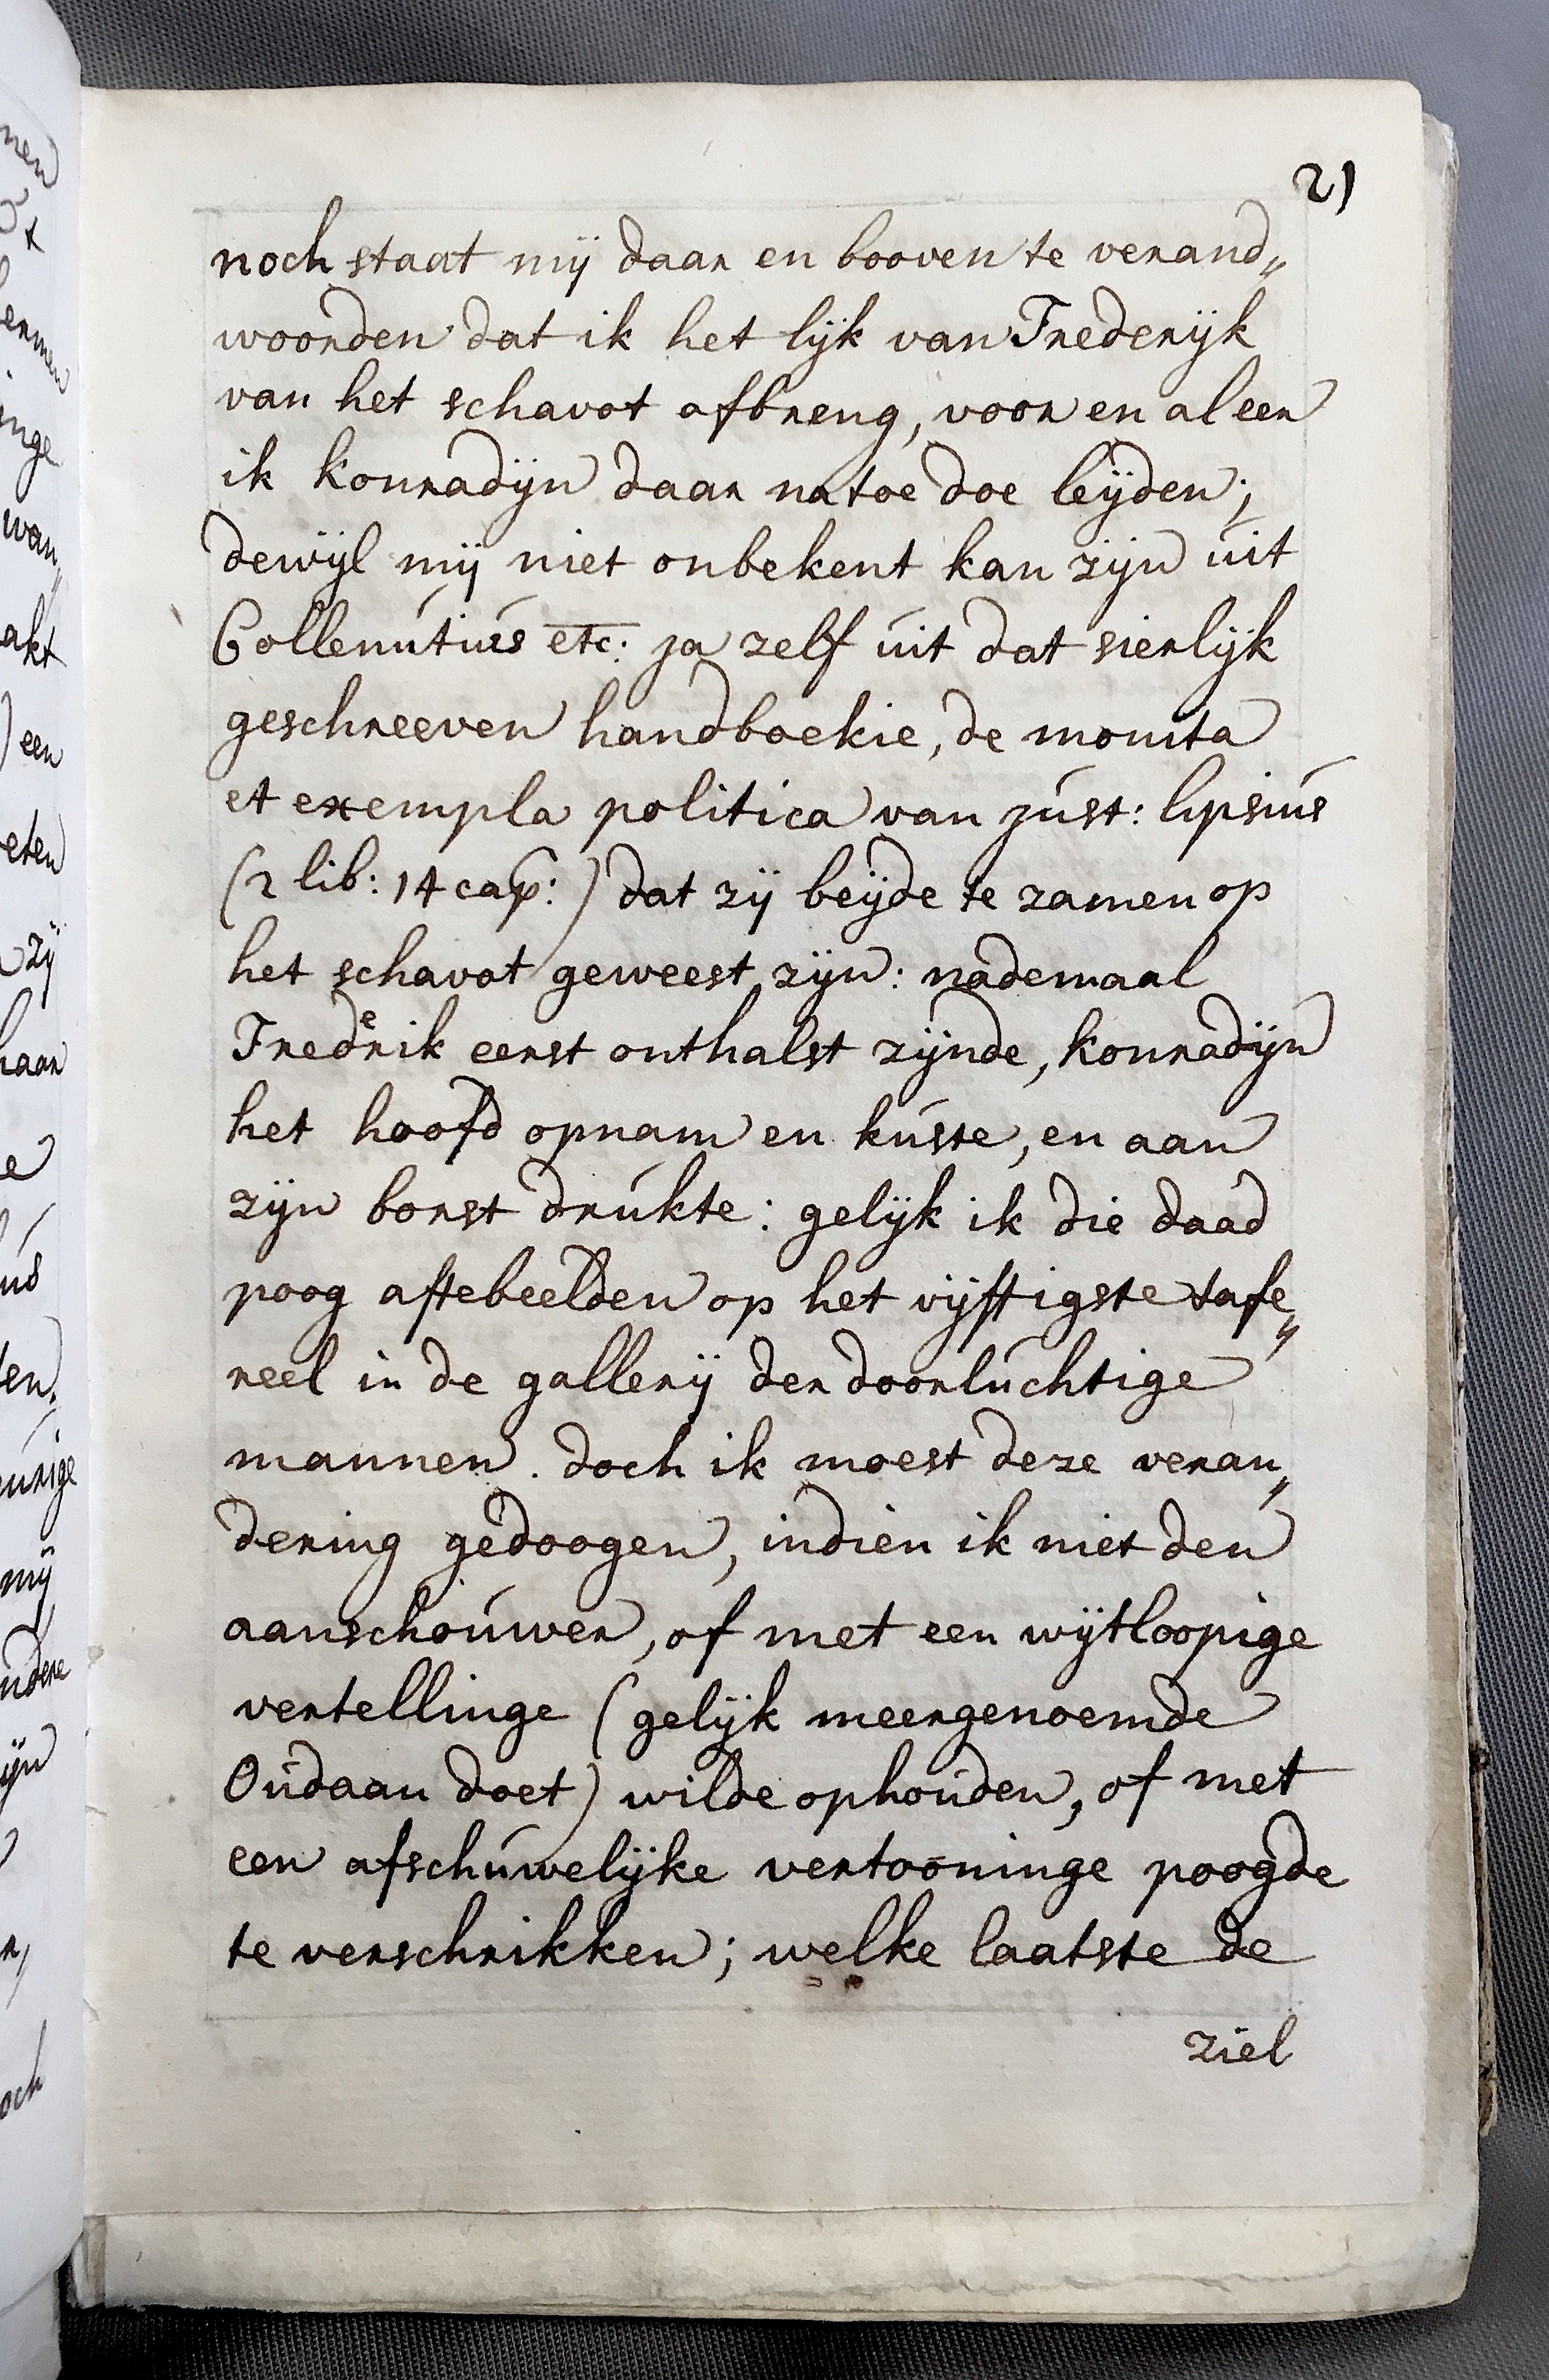 21
noch staat mij daar en booven te verand„
woorden dat ik het lijk van Frederijk
van het schavot afbreng, voor en al eer
ik Konradijn daar na toe doe leijden;
dewijl mij niet onbekent kan zijn uit
Collenutius etc: ja zelf uit dat sierlijk
geschreeven handboekie, de monita
et exempla politica van just: lipsius
(2 lib: 14 cap:) dat zij beijde te zamen op
het schavot geweest zijn: nademaal
Frederik eerst onthalst zijnde, konradijn
het hoofd opnam en kuste, en aan
zijn borst drukte: gelijk ik die daad
poog aftebeelden op het vijftigste tafe„
reel in de gallerij der doorluchtige
mannen. doch ik moest deze veran„
dering gedoogen, indien ik niet den
aanschouwer, of met een wijtloopige
vertellinge (gelijk meergenoemde
Oudaan doet) wilde ophouden, of met
een afschuwelijke vertooninge poogde
te verschrikken; welke laatste de
ziel